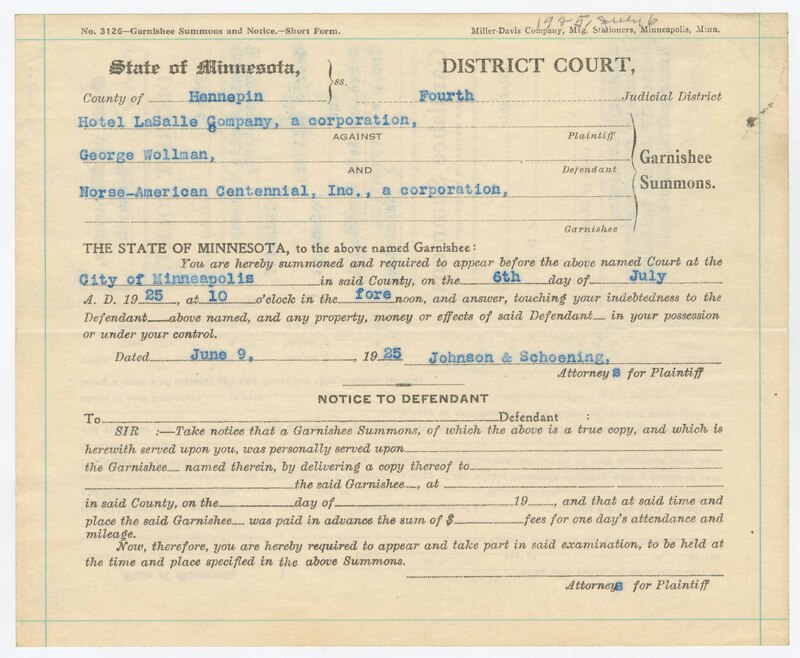 1925, July 6
No. 3126—Garnishee Summons and Notice.—Short Form. Miller-Davis Company, Mfg. Stationers, Minneapolis, Minn.
State of Minnesota, ss. DISTRICT COURT,
County of Hennepin Fourth Judicial District
Hotel LaSalle Company, a corporation,
AGAINST Plaintiff
George Wollman,
AND Defendant
Garnishee Summons.
Norse-American Centennial, Inc., a corporation,
Garnishee
THE STATE OF MINNESOTA, to the above named Garnishee:
You are hereby summoned and required to appear before the above named Court at the
City of Minneapolis in said County, on the 6th day of July
A. D. 1925, at 10 o'clock in the forenoon, and answer, touching your indebtedness to the
Defendant above named, and any property, money or effects of said Defendant in your possession
or under your control.
Dated June 9, 1925 Johnson & Schoening,
Attorneys for Plaintiff
NOTICE TO DEFENDANT
To Defendant :
SIR :—Take notice that a Garnishee Summons, of which the above is a true copy, and which is
herewith served upon you, was personally served upon
the Garnishee named therein, by delivering a copy thereof to
the said Garnishee, at
in said County, on the day of 19 , and that at said time and
place the said Garnishee was paid in advance the sum of $ fees for one day's attendance and
mileage.
Now, therefore, you are hereby required to appear and take part in said examination, to be held at
the time and place specified in the above Summons.
Attorneys for Plaintiff